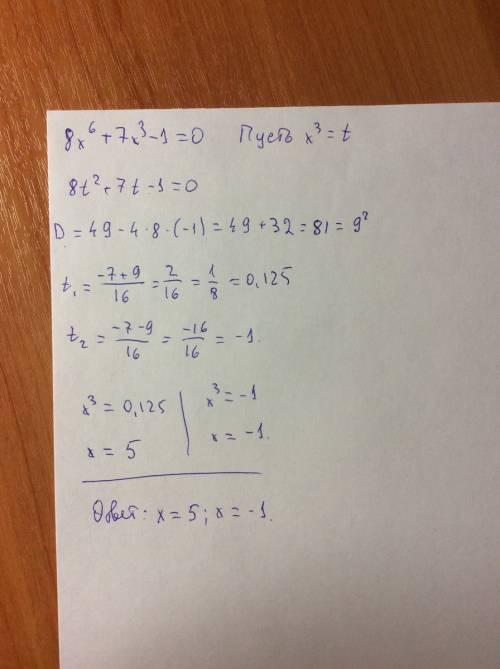 8x⁶ + 7x³ - 1 = 0 Пусть x³ = t
8t² + 7t - 1 = 0
D = 49 - 4 · 8 · (-1) = 49 + 32 = 81 = 9²
t₁ = (-7+9)/16 = 2/16 = 1/8 = 0,125
t₂ = (-7-9)/16 = -16/16 = -1.
x³ = 0,125 | x³ = -1
x = 5 | x = -1.
Ответ: x = 5; x = -1.